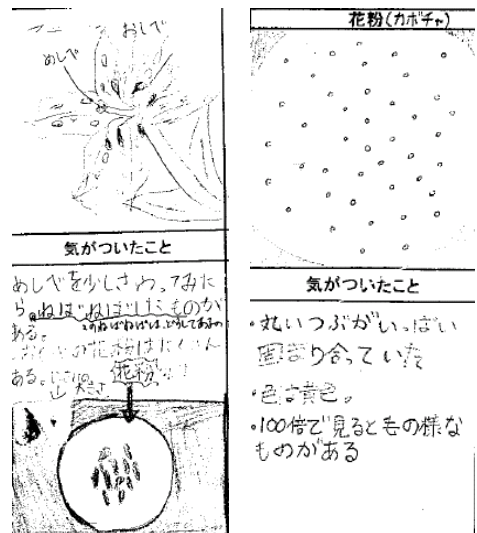 おしべ
めしべ
気がついたこと
めしべを少しさわってみた
ら、ねばねばしたものが
ある。
の花粉はたくさん
ある。
花粉
花粉(カボチャ)
気がついたこと
・丸いつぶがいっぱい
固まり合っていた
・色は黄色。
・100倍で見ると毛の様な
ものがある